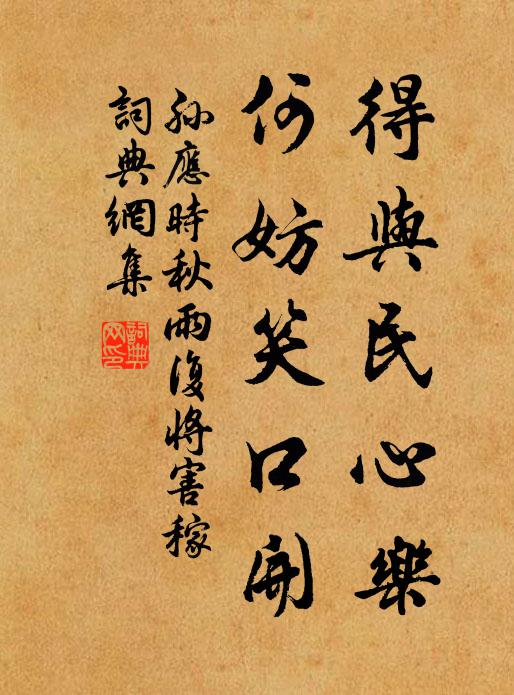 得與民心樂
何妨笑口開
孫應時秋雨復將害稼
詞典網集
詞典網印